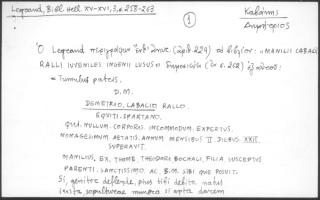 Legrand, Bibl. Hell. XV-XVI, 3, σ. 258-263
Καβάκης
Δημήτριος
1
Ὁ Legrand περιγράφων ὑπ' ἀριθ. 224) τὸ βιβλίον: «MANILII CABACI
RALLI IUVENILES INGENII LUSUS» δημοσιεύει (ἐν σ. 262)
= Tumulus patris.
D. M.
DEMETRIO LABALIO RALLO
EQUITI SPARTANO.
QUI NULLUM CORPORIS INCOMMODUM EXPERTUS.
NONAGESIMUM AETATIS ANNUM MENSIBUS II DIEBUS XXII
SUPERAVIT.
MANILIUS, EX THOME THEODORI BOCHALI FILIA SUSCEPTUS
PARENTI SANCTISSIMO AC B. M. SIBI QUE POSUIT.
Si, genitor deflende, pius tibi debita natus
iusta, sepulturae munera si apta darem